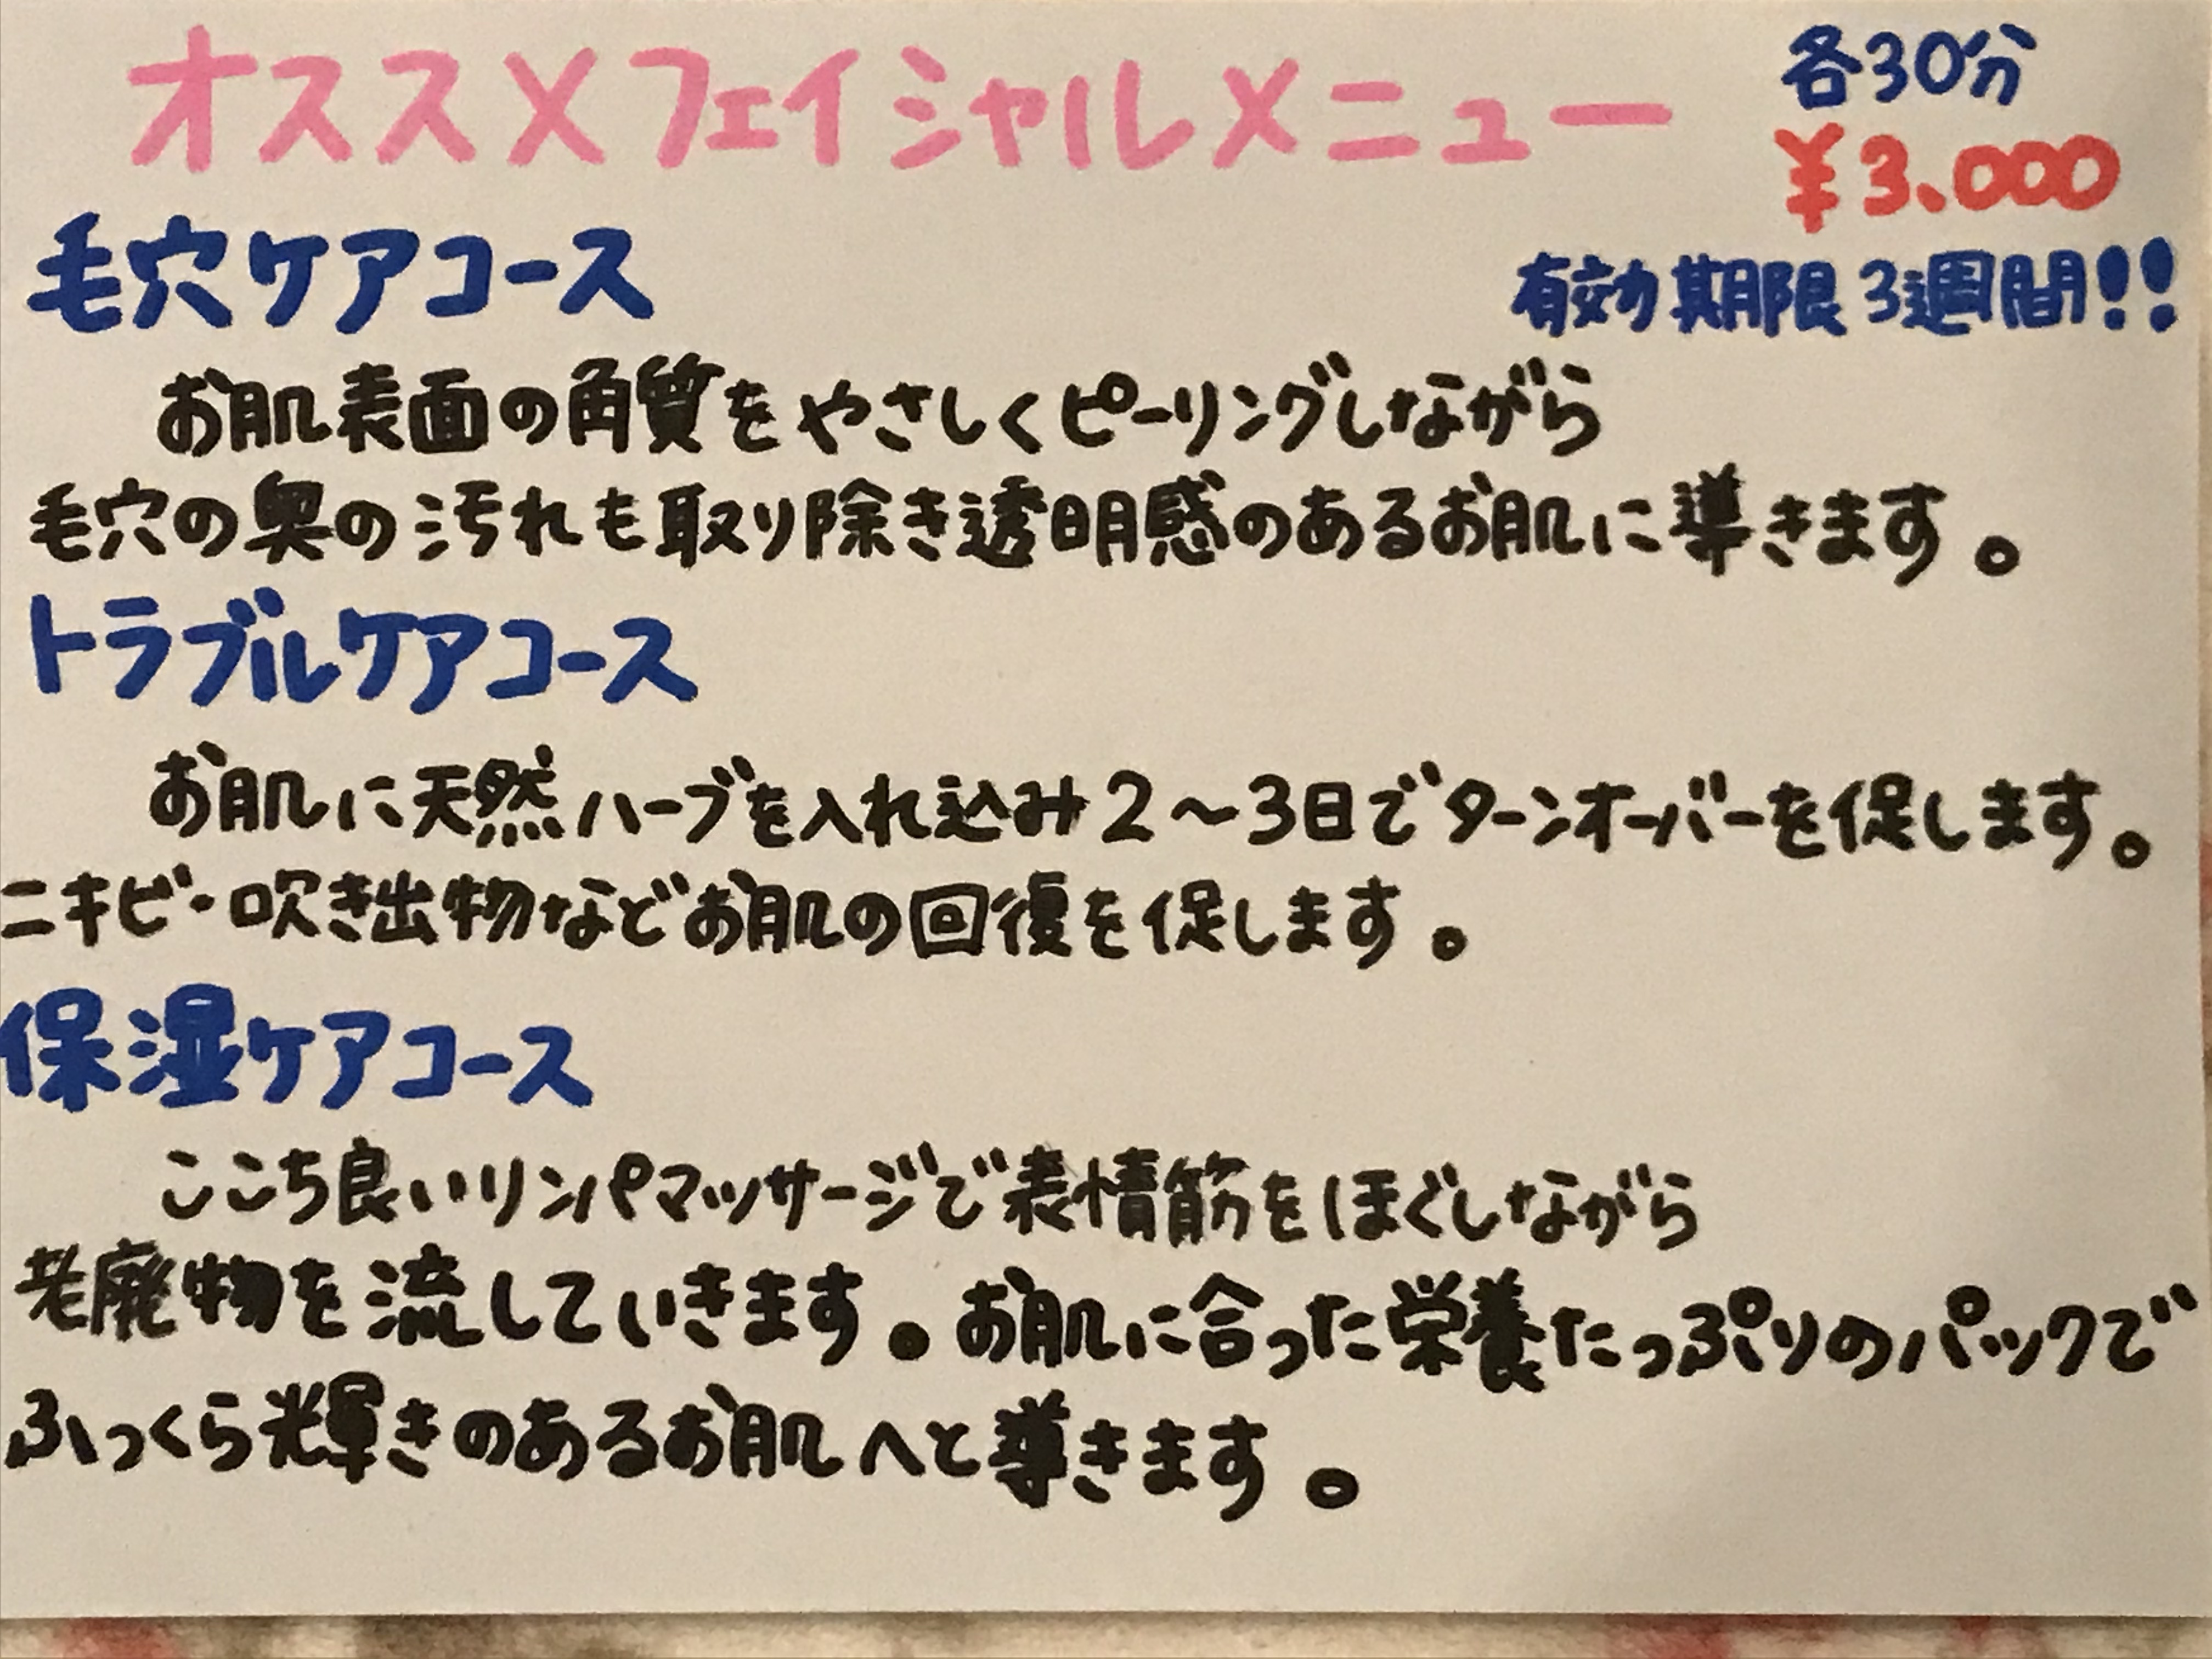 オススメフェイシャルメニュー
各30分
¥3.000
有効期限3週間!!
毛穴ケアコース
お肌表面の角質をやさしくピーリングしながら
毛穴の奥の汚れも取り除き透明感のあるお肌に導きます。
トラブルケアコース
お肌に天然ハーブを入れ込み2〜3日でターンオーバーを促します。
ニキビ・吹き出物などお肌の回復を促します。
保湿ケアコース
ここち良いリンパマッサージで表情筋をほぐしながら
老廃物を流していきます。お肌に合った栄養たっぷりのパックで
ふっくら輝きのあるお肌へと導きます。